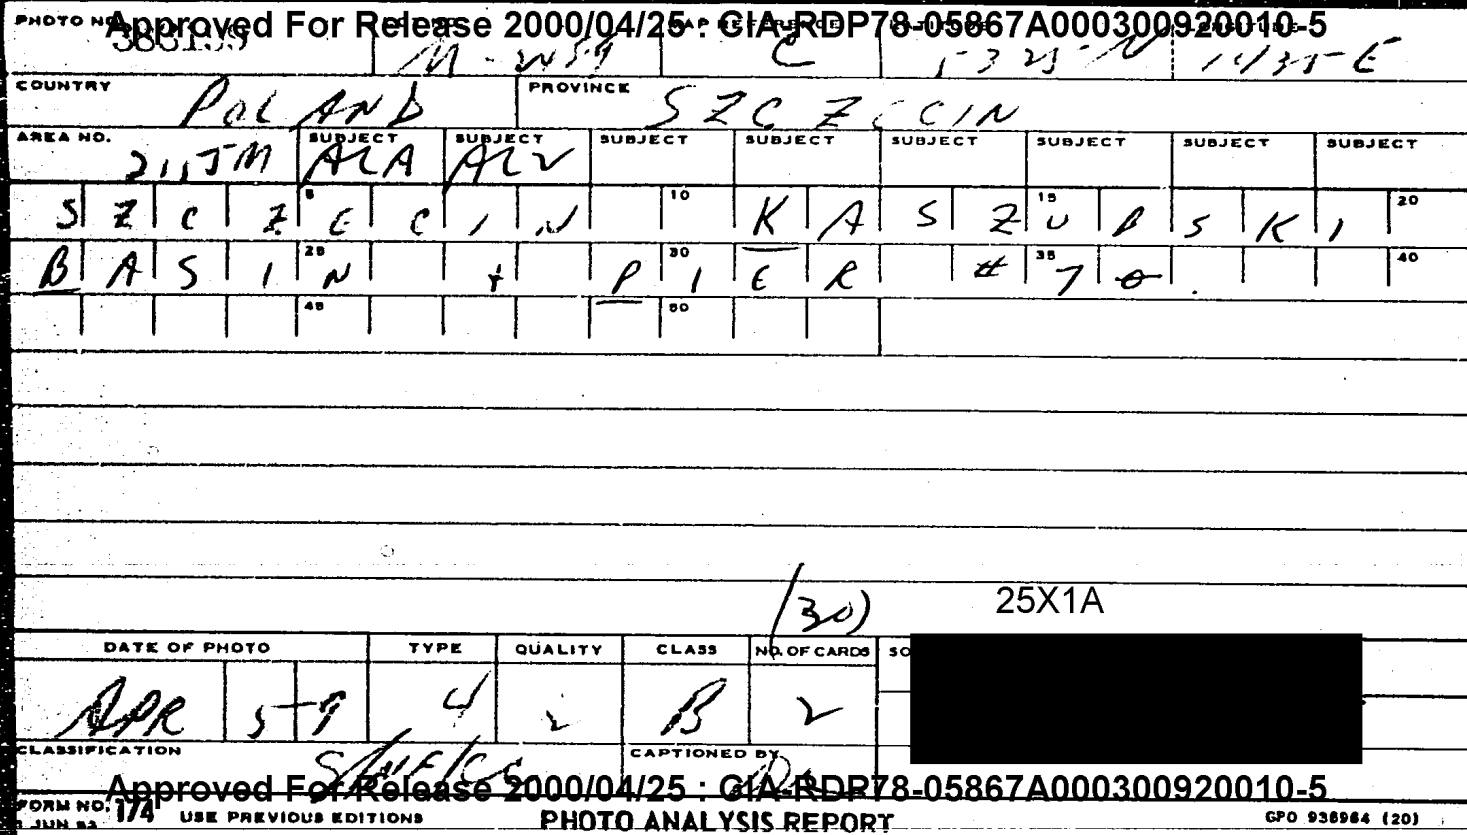 PHOTO NO. Approved For Release 2000/04/25 : CIA-RDP78-05867A000300920010-5
386159 M-2459 MAP REFERENCE C 5325-N 1435-E
COUNTRY POLAND PROVINCE SZCZECIN
AREA NO. 211JM SUBJECT ALA SUBJECT ALV SUBJECT SUBJECT SUBJECT SUBJECT SUBJECT SUBJECT
5 10 15 20
SZCZECIN KASZUBSKI
25 30 35 40
BASIN + PIER #70.
45 50
(30) 25X1A
DATE OF PHOTO TYPE QUALITY CLASS NO. OF CARDS SO
APR 59 4 2 B 2
CLASSIFICATION S/NF/CC CAPTIONED BY
Approved For Release 2000/04/25 : CIA-RDP78-05867A000300920010-5
FORM NO. 174 USE PREVIOUS EDITIONS PHOTO ANALYSIS REPORT GPO 936964 (20)
1 JUN 53